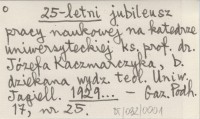 25-letni jubileusz
pracy naukowej na katedrze
uniwersyteckiej ks. prof. dr.
Józefa Kaczmarczyka, b.
dziekana wydz. teol. Uniw.
Jagiell. 1929... – Gaz. Podh.
17, nr 25.